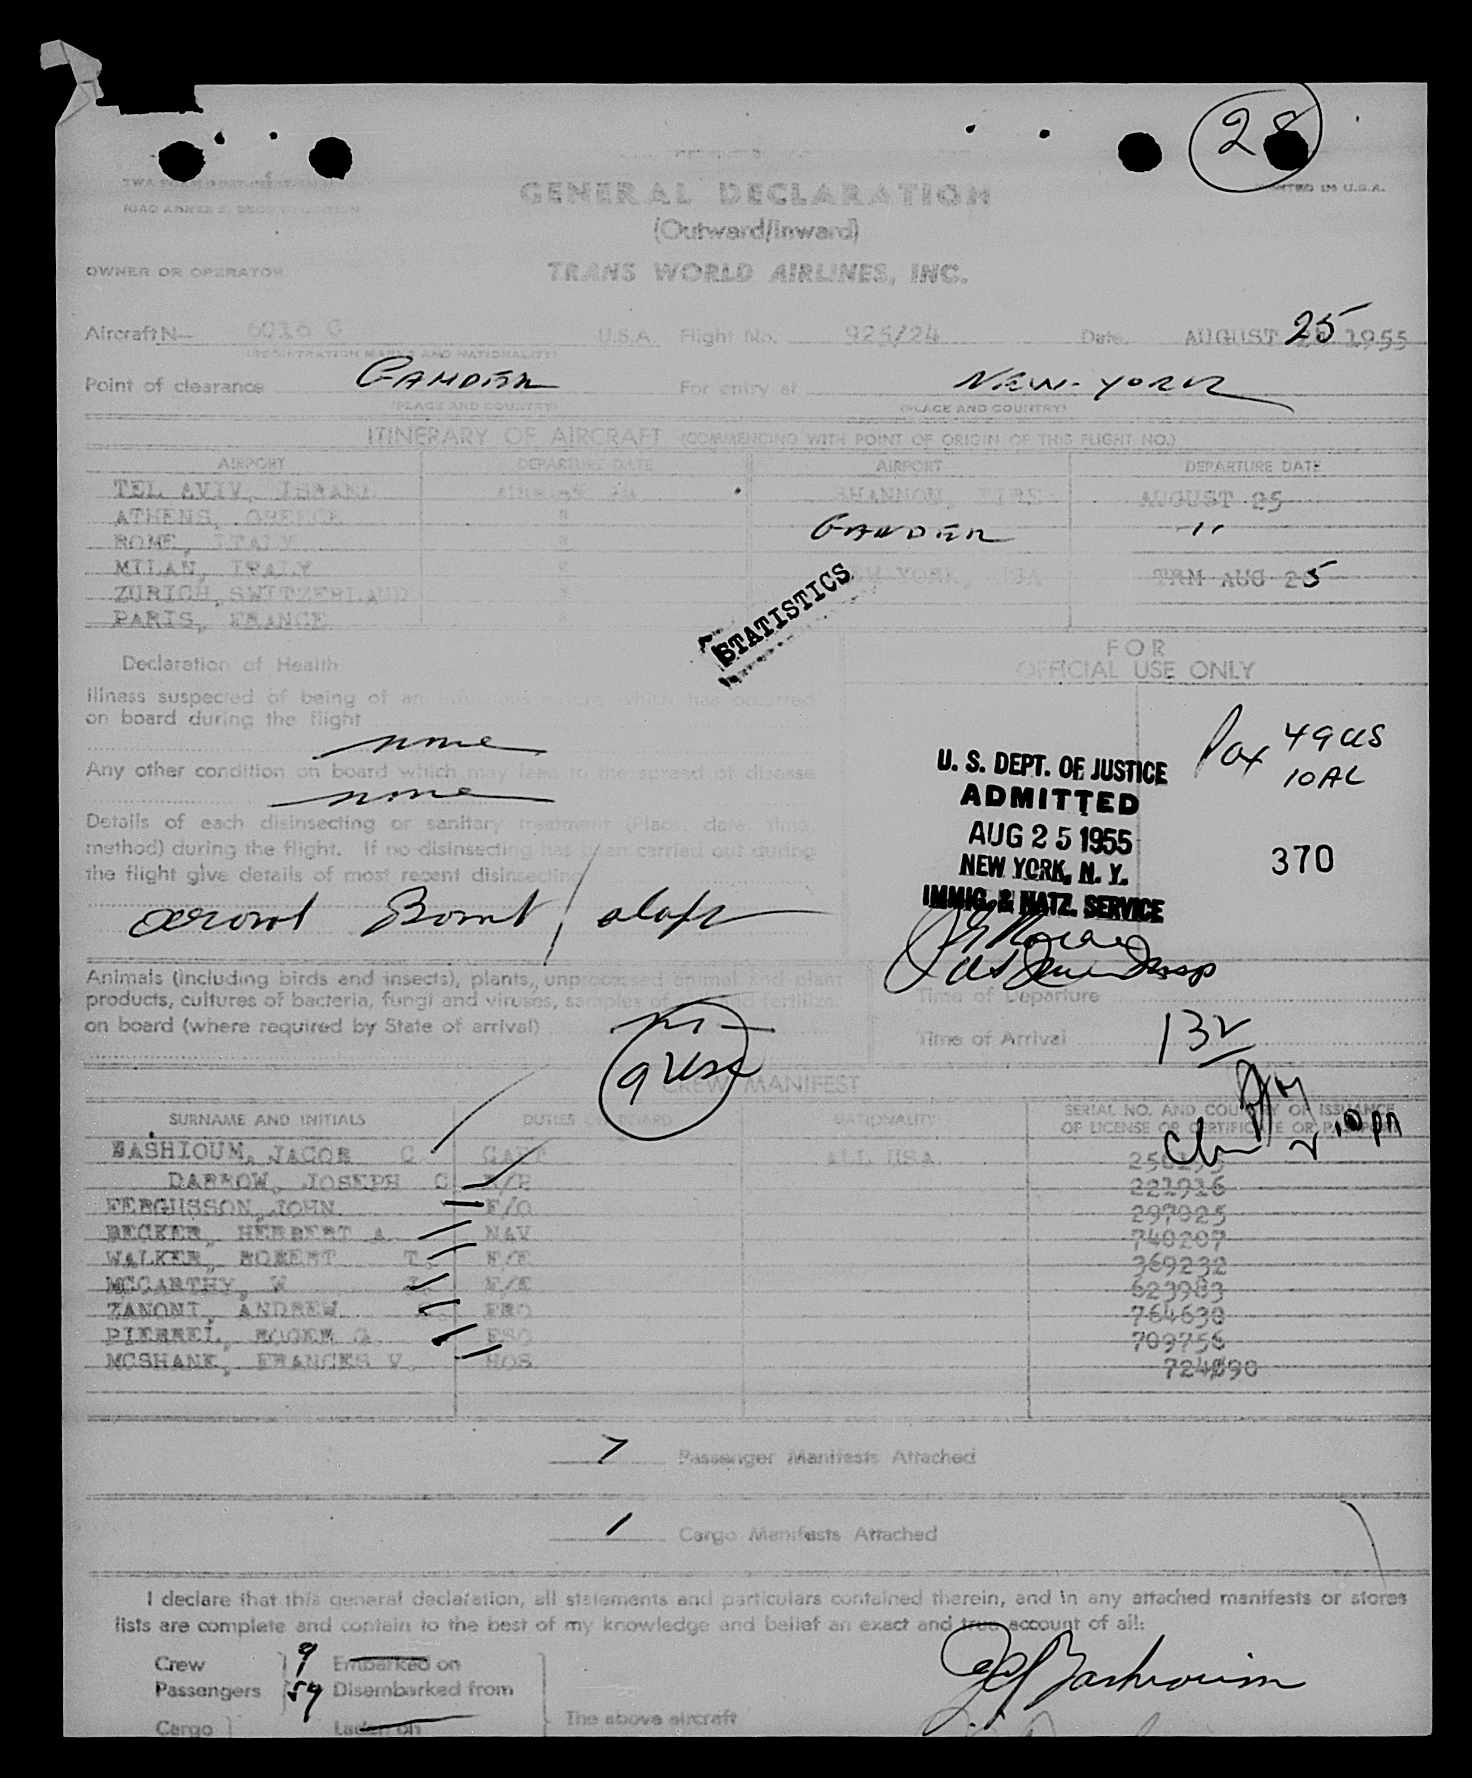 28
PRINTED IN U.S.A.
GENERAL DECLARATION
(Outward/Inward)
OWNER OR OPERATOR TRANS WORLD AIRLINES, INC.
Aircraft N— 6016 C U.S.A. Flight No. 925/24 Date. AUGUST 25 1955
(REGISTRATION MARKS AND NATIONALITY)
Point of clearance GANDER For entry at NEW-YORK
(PLACE AND COUNTRY) (PLACE AND COUNTRY)
ITINERARY OF AIRCRAFT (COMMENCING WITH POINT OF ORIGIN OF THIS FLIGHT NO.)
AIRPORT DEPARTURE DATE AIRPORT DEPARTURE DATE
TEL AVIV, ISRAEL AUGUST 24 SHANNON, EIRE AUGUST 25
ATHENS, GREECE " GANDER "
ROME, ITALY "
MILAN, ITALY " NEW YORK, USA TRM AUG 25
ZURICH, SWITZERLAND "
PARIS, FRANCE "
STATISTICS
Declaration of Health
FOR
OFFICIAL USE ONLY
Illness suspected of being of an infectious nature which has occurred
on board during the flight
none
Any other condition on board which may lead to the spread of disease
none
Details of each disinsecting or sanitary treatment (Place, date, time,
method) during the flight. If no disinsecting has been carried out during
the flight give details of most recent disinsecting
aerosol Bomb /
Pax 49 US
10 AL
U. S. DEPT. OF JUSTICE
ADMITTED
AUG 25 1955
NEW YORK, N. Y.
IMMIG. & NATZ. SERVICE
370
Animals (including birds and insects), plants, unprocessed animal and plant
products, cultures of bacteria, fungi and viruses, samples of soil and fertilizer
on board (where required by State of arrival)
Time of Departure
Time of Arrival 132
9 USC
CREW MANIFEST
SURNAME AND INITIALS DUTIES ON BOARD NATIONALITY SERIAL NO. AND COUNTRY OF ISSUANCE
OF LICENSE OR CERTIFICATE OR PASSPORT
BASHIOUM, JACOB C. CAPT ALL USA
DARROW, JOSEPH C 221916
FERGUSSON, JOHN F/O 297025
BECKER, HERBERT A. NAV 740207
WALKER, ROBERT T. F/E 369232
MCCARTHY, W J. F/E 623983
ZANONI, ANDREW PRO 764630
PIERREL, ROGER G. FSO 709756
MCSHANE, FRANCES V. HOS 724890
7 Passenger Manifests Attached
1 Cargo Manifests Attached
I declare that this general declaration, all statements and particulars contained therein, and in any attached manifests or stores
lists are complete and contain to the best of my knowledge and belief an exact and true account of all:
Crew 9 Embarked on
Passengers 59 Disembarked from
Cargo Laden on
The above aircraft